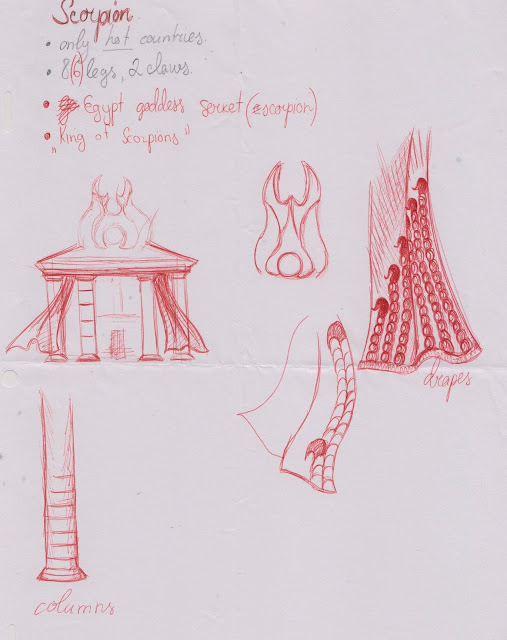 Scorpion
• only hot countries.
• 8(6) legs, 2 claws.
• Egypt goddess serket (escorpion)
• "King of Scorpions"
drapes
columns